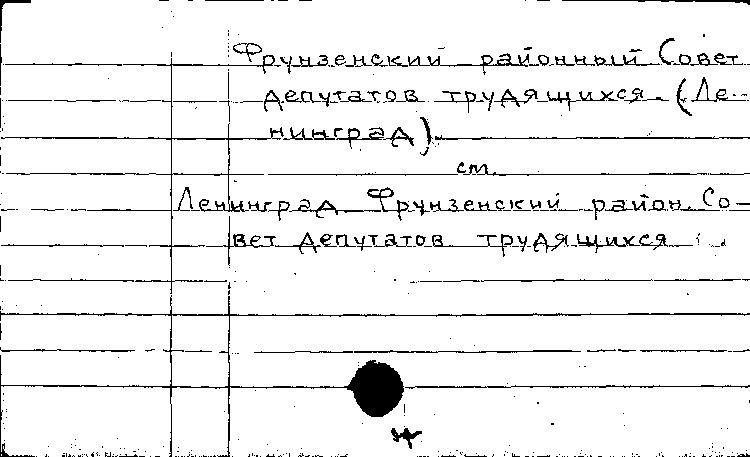 Фрунзенский районный Совет
депутатов трудящихся. (Ле-
нинград).
см.
Ленинград. Фрунзенский район. Со-
вет депутатов трудящихся.